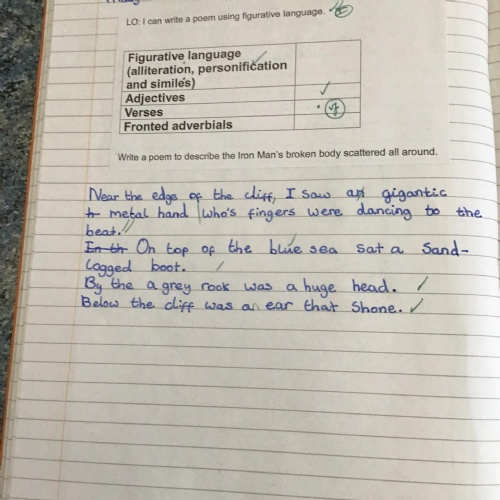 LO: I can write a poem using figurative language.
Figurative language
(alliteration, personification
and similes)
Adjectives
Verses
Fronted adverbials
Write a poem to describe the Iron Man's broken body scattered all around.
Near the edge of the cliff, I saw an gigantic
h metal hand who's fingers were dancing to the
beat.
In th On top of the blue sea sat a sand-
logged boot.
By the a grey rock was a huge head.
Below the cliff was an ear that shone.